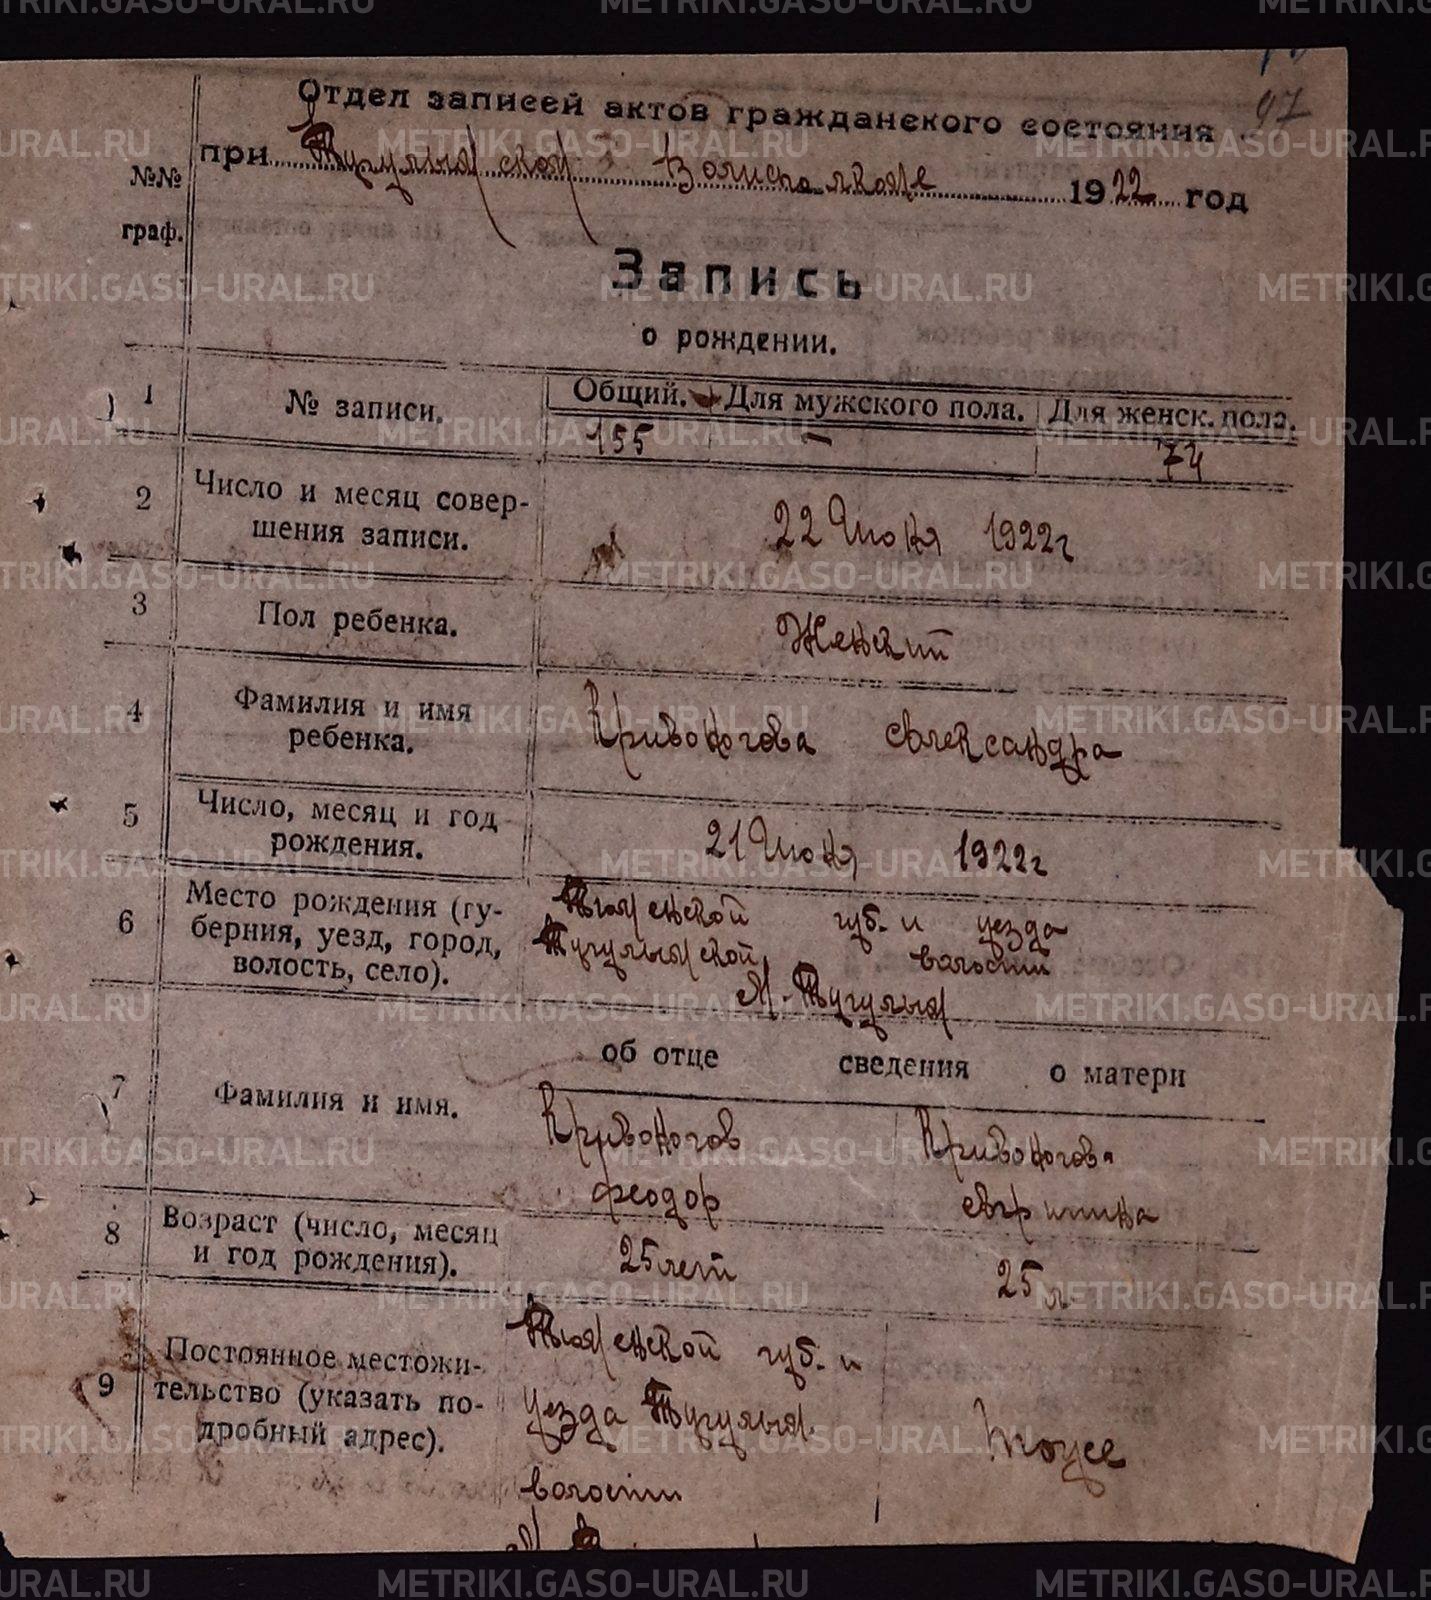 97
Отдел записей актов гражданского состояния
при Тугулымской Волисполкоме 1922 год
№№
граф.
Запись
о рождении.
1 № записи. Общий. Для мужского пола. Для женск. пола.
155 — 74
2 Число и месяц совер-
шения записи. 22 Июня 1922г
3 Пол ребенка. Женский
4 Фамилия и имя
ребенка. Кривоногова Александра
5 Число, месяц и год
рождения. 21 Июня 1922г
6 Место рождения (гу-
берния, уезд, город,
волость, село). Тюменской губ. и уезда
Тугулымской волости
Тугулым
об отце сведения о матери
7 Фамилия и имя. Кривоногов Кривоногова
Феодор
8 Возраст (число, месяц
и год рождения). 25 лет 25 л
9 Постоянное местожи-
тельство (указать по-
дробный адрес). Тюменской губ. и
уезда Тугулым.
волости
тоже
METRIKI.GASO-URAL.RU